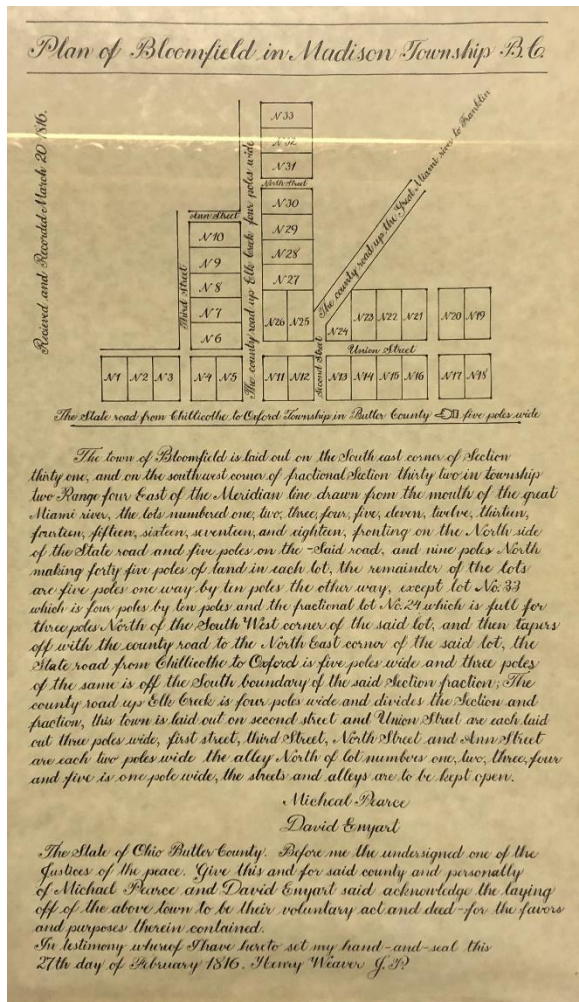 Plan of Bloomfield in Madison Township B.C.
Recieved and Recorded March 20 1816.
N33
N32
N31
North Street
N30
N29
N28
N27
N26 N25
The county road up Elk Creek four poles wide
Ann Street
N10
N9
N8
N7
N6
Third Street
The county road up the Great Miami river to Franklin
N24
N23 N22 N21
N20 N19
Union Street
Second Street
N1 N2 N3
N4 N5
N11 N12
N13 N14 N15 N16
N17 N18
The State road from Chillicothe to Oxford Township in Butler County five poles wide
The town of Bloomfield is laid out on the South east corner of Section
thirty one, and on the southwest corner of fractional Section thirty two in township
two Range four East of the Meridian line drawn from the mouth of the great
Miami river, the lots numbered one, two, three, four, five, eleven, twelve, thirteen,
fourteen, fifteen, sixteen, seventeen, and eighteen, fronting on the North side
of the State road and five poles on the Said road, and nine poles North
making forty five poles of land in each lot, the remainder of the lots
are five poles one way by ten poles the other way, except lot No. 33
which is four poles by ten poles and the fractional lot No. 24 which is full for
three poles North of the South West corner of the said lot, and then tapers
off with the county road to the North East corner of the said lot, the
State road from Chillicothe to Oxford is five poles wide and three poles
of the same is off the South boundary of the said Section fraction; The
county road up Elk Creek is four poles wide and divides the Section and
fraction, this town is laid out on second street and Union Street are each laid
out three poles wide, first street, third Street, North Street and Ann Street
are each two poles wide the alley North of lot numbers one, two, three, four
and five is one pole wide, the streets and alleys are to be kept open.
Micheal Pearce
David Enyart
The State of Ohio Butler County. Before me the undersigned one of the
Justices of the peace. Give this and for said county and personally
of Michael Pearce and David Enyart said acknowledge the laying
off of the above town to be their voluntary act and deed-for the favors
and purposes therein contained.
In testimony whereof I have hereto set my hand-and-seal this
27th day of February 1816. Henry Weaver J.P.